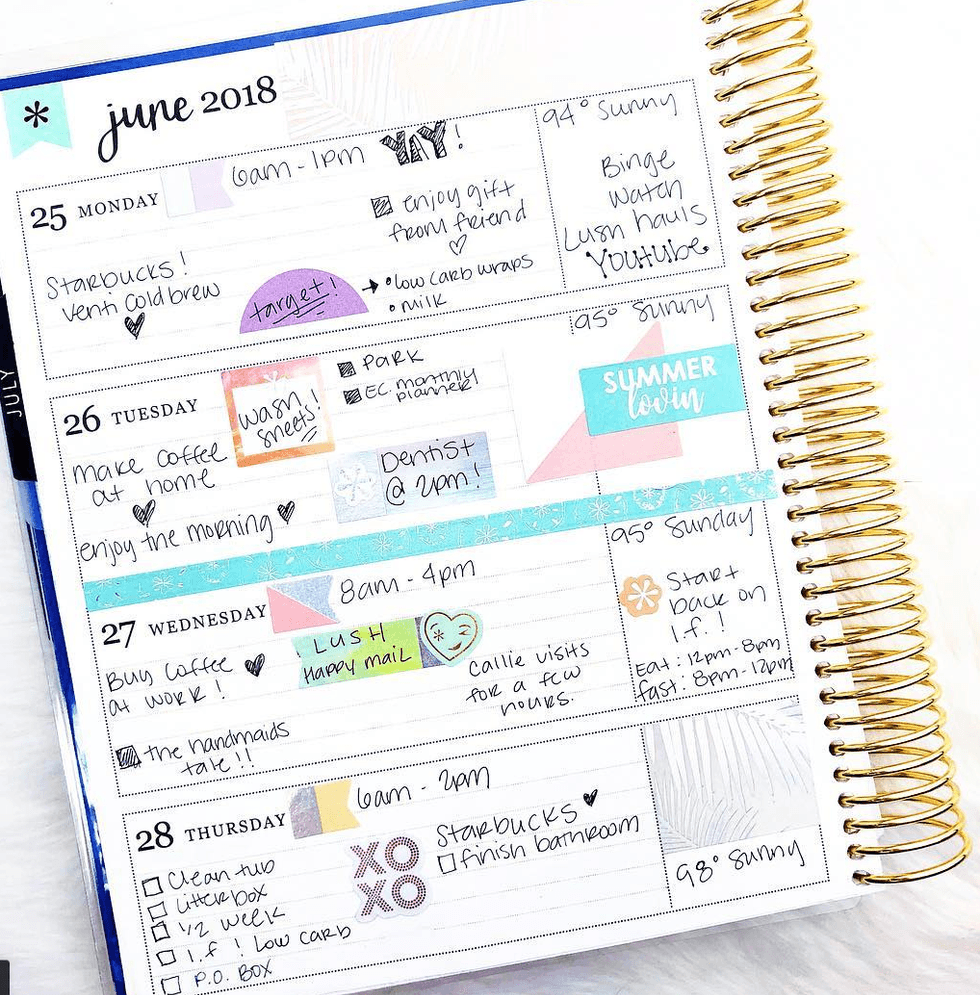 * june 2018
25 MONDAY
6am - 1pm YAY!
94° Sunny
enjoy gift
from friend
Starbucks!
Venti Cold brew
target!
• low carb wraps
• milk
Binge
watch
Lush hauls
Youtube.
26 TUESDAY
wash
sheets!
PARK
EC. monthly
planner
95° Sunny
SUMMER
lovin
make coffee
at home
enjoy the morning
Dentist
@ 2pm!
27 WEDNESDAY
8am - 4pm
95° Sunday
LUSH
Happy mail
Buy Coffee
at work!
Callie visits
for a few
hours.
the handmaids
tale!!
Start
back on
I.f.!
Eat: 12pm - 8pm
fast: 8pm - 12pm
28 THURSDAY
6am - 2pm
Clean two
litterbox
1/2 week
I.f! Low carb
P.O. BOX
XO
XO
Starbucks
finish bathroom
98° Sunny
JULY